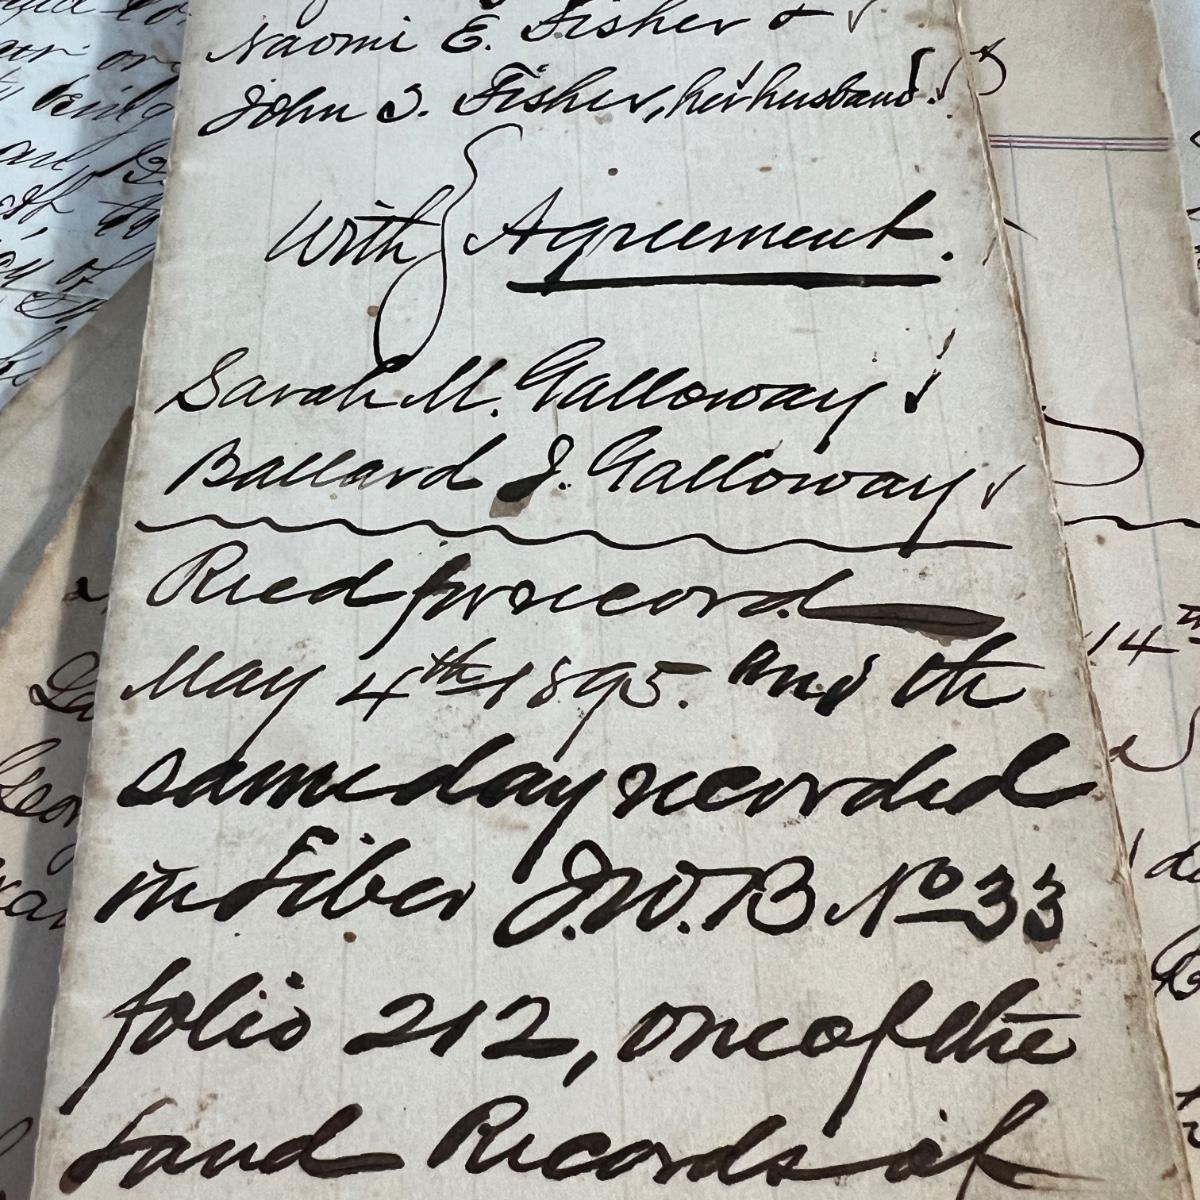 Naomi E. Fisher &
John S. Fisher, her husband.
With } Agreement.
Sarah M. Galloway
Ballard J. Galloway
Recd for record
May 4th 1895. and the
same day recorded
in Liber J.W.B. No 33
folio 212, one of the
Land Records of
14th